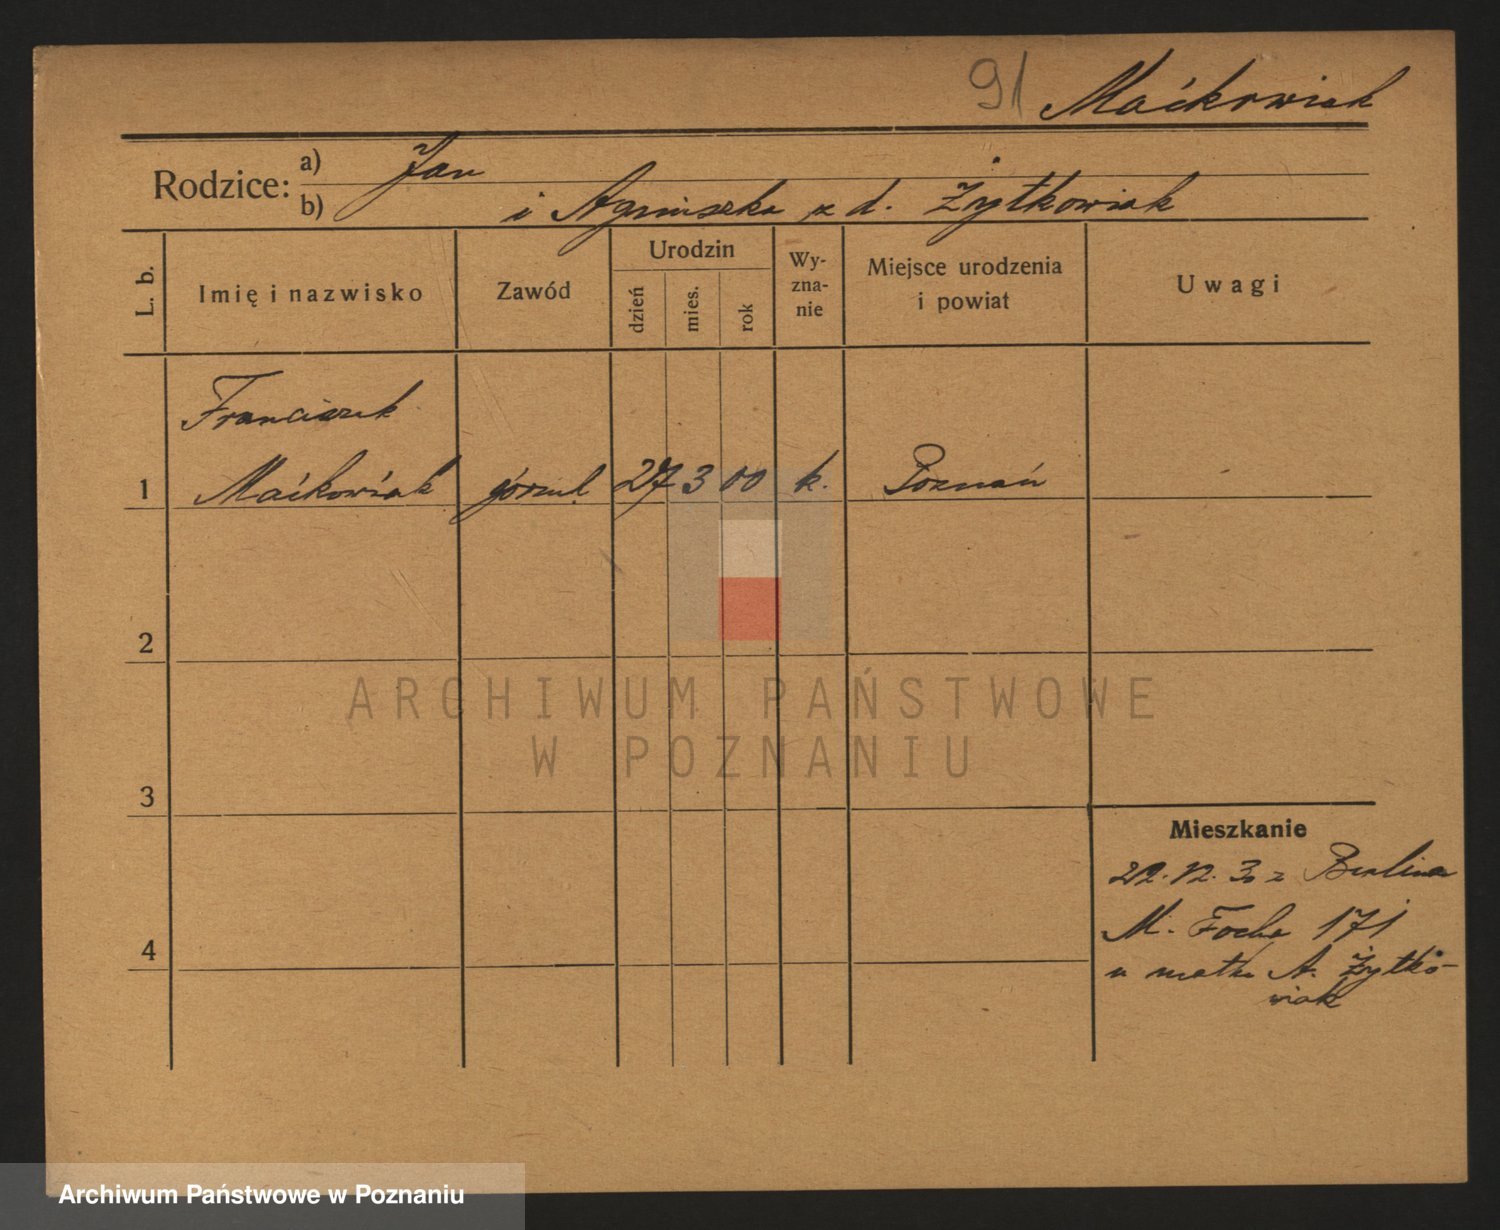 91 Maćkowiak
Rodzice: a) Jan
b) i Agnieszka z d. Żytkowiak
L. b.
Imię i nazwisko
Zawód
Urodzin
dzień
mies.
rok
Wy-
zna-
nie
Miejsce urodzenia
i powiat
Uwagi
Franciszek
1 Maćkowiak górnik 27 3 00 k. Poznań
2
ARCHIWUM PAŃSTWOWE
W POZNANIU
3
Mieszkanie
22. 12. 30 z Berlina
M. Focha 171
4
u matki A. Żytko-
wiak
Archiwum Państwowe w Poznaniu